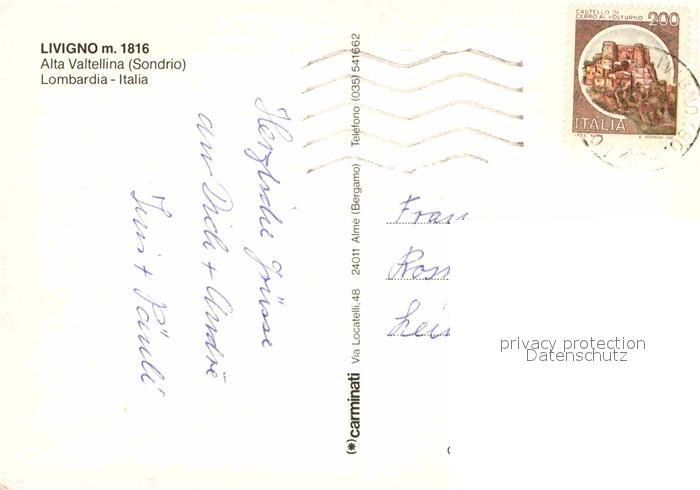 LIVIGNO m. 1816
Alta Valtellina (Sondrio)
Lombardia - Italia
Herzliche Grüsse
an Dich + André
+ Pauli
(*) carminati Via Locatelli, 48 24011 Almè (Bergamo) Telefono (035) 541662
CASTELLO DI
CERRO AL VOLTURNO 200
ITALIA
privacy protection
Datenschutz